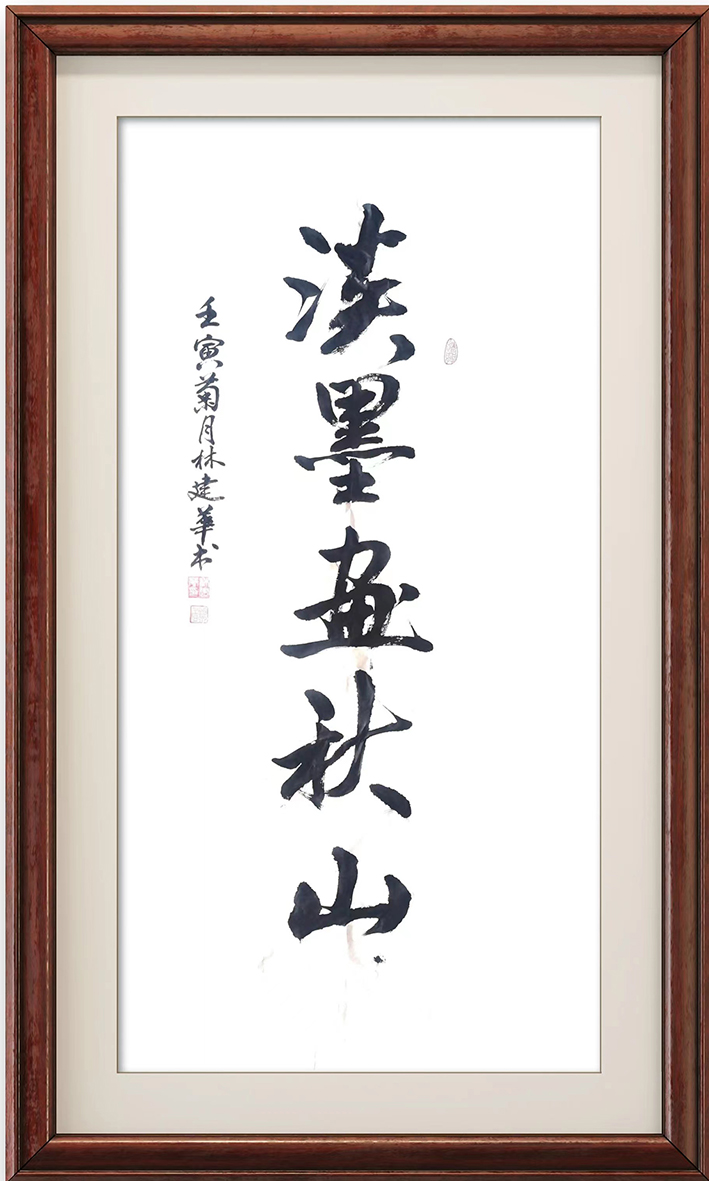 淡墨画秋山
壬寅菊月林建華书